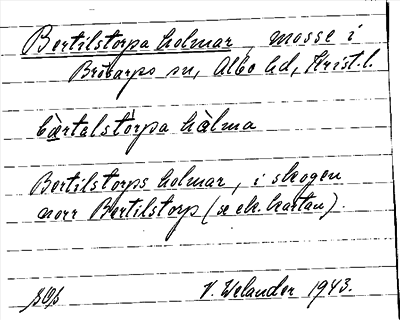 Bertilstorpa holmar, mosse i
Brösarps sn, Albo hd, Krist.l.
bærtalstòrpa hàlma
Bertilstorps holmar, i skogen
norr Bertilstorp (se ek. kartan).
V. Welander 1943.